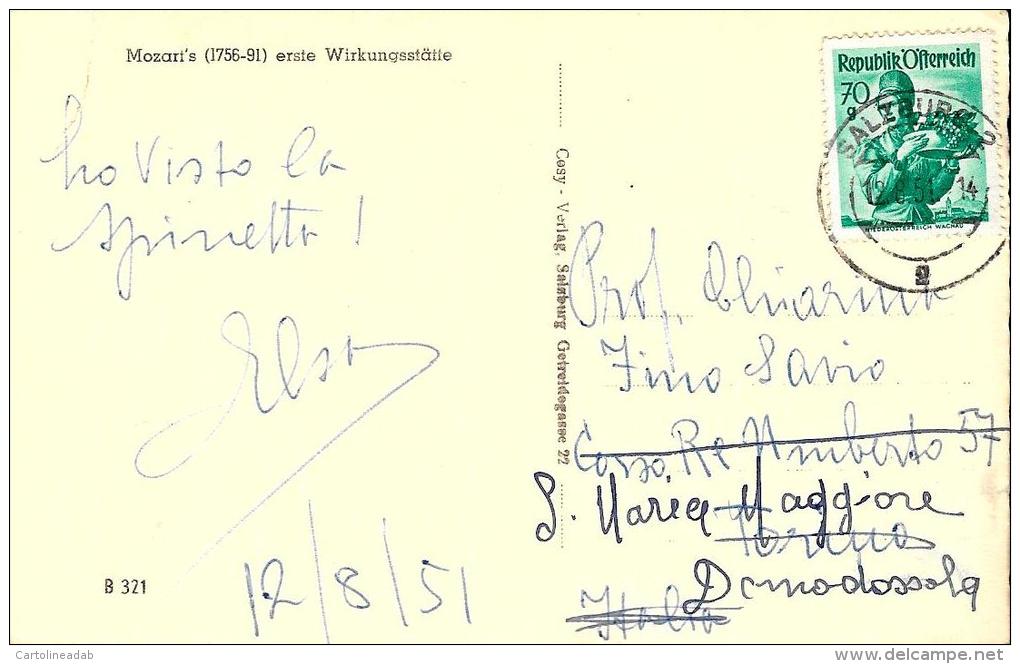 Mozart's (1756-91) erste Wirkungsstätte
ho visto la
spinetta!
Elsa
12/8/51
B 321
Cosy - Verlag, Salzburg Getreidegasse 22
Republik Österreich
70
g
NIEDERÖSTERREICH WACHAU
SALZBURG 2
12.8.51 14
g
Prof.
Fino Savio
Corso Re Umberto 57
S. Maria Maggiore
Torino
Domodossola
Italia
© Cartolineadab
delcampe.net